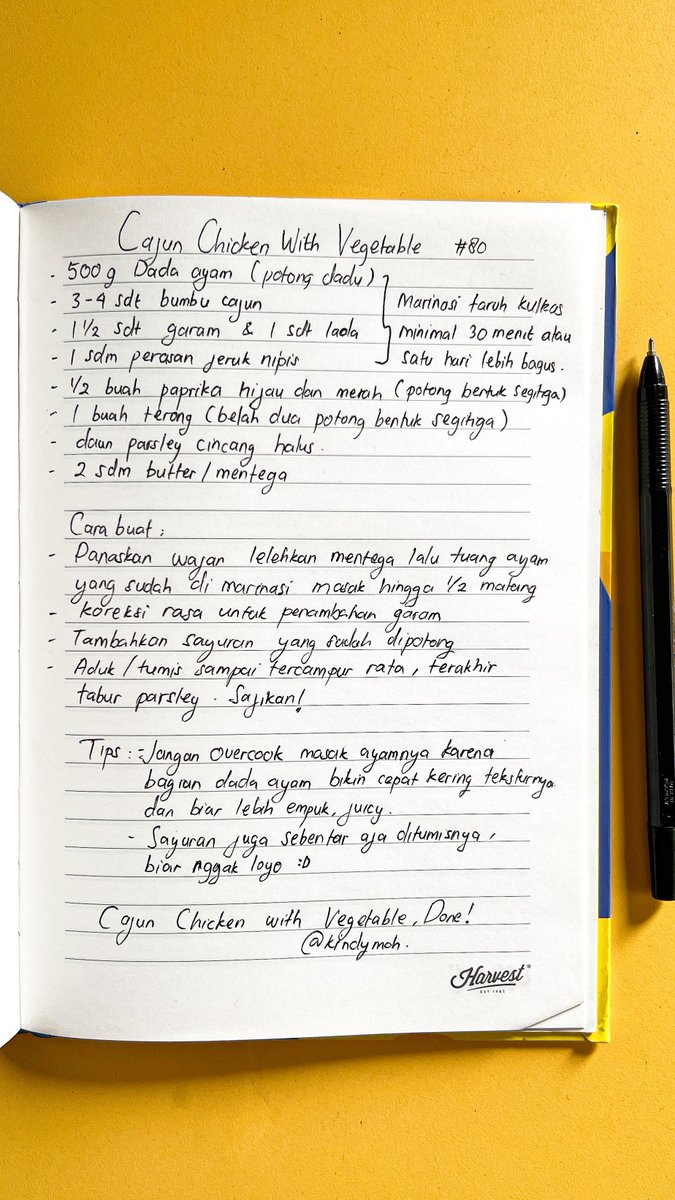 Cajun Chicken With Vegetable #80
- 500 g Dada ayam (potong dadu)
- 3-4 sdt bumbu cajun
- 1 1/2 sdt garam & 1 sdt lada
- 1 sdm perasan jeruk nipis
Marinasi taruh kulkas
minimal 30 menit atau
satu hari lebih bagus.
- 1/2 buah paprika hijau dan merah (potong bentuk segitiga)
- 1 buah terong (belah dua potong bentuk segitiga)
- daun parsley cincang halus.
- 2 sdm butter/mentega
Cara buat :
- Panaskan wajan lelehkan mentega lalu tuang ayam
yang sudah di marinasi masak hingga 1/2 matang
- koreksi rasa untuk penambahan garam
- Tambahkan sayuran yang sudah dipotong
- Aduk/tumis sampai tercampur rata, terakhir
tabur parsley. Sajikan!
Tips : - Jangan overcook masak ayamnya karena
bagian dada ayam bikin cepat kering teksturnya
dan biar lebih empuk, juicy.
- Sayuran juga sebentar aja ditumisnya,
biar nggak loyo :D
Cajun Chicken with Vegetable, Done!
@kindymoh.
Harvest
EST 1982